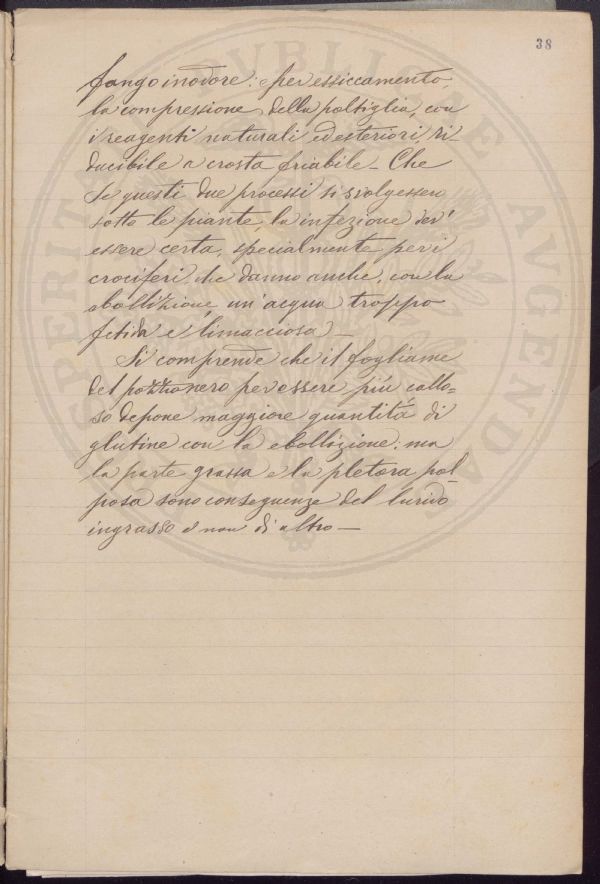 38
fango inodore: per essiccamento,
la compressione della poltiglia, con
i reagenti naturali, ed esteriori, ri-
ducibile a crosta friabile_ Che
se questi due processi si svolgessero
sotto le piante, la infezione dev'
essere certa, specialmente per i
crociferi, che danno anche, con la
ebollizione, un'acqua troppo
fetida e limacciosa_
Si comprende che il fogliame
del pozzo nero per essere più callo=
so depone maggiore quantità di
glutine con la ebollizione: ma
la parte grassa e la pletora pol_
posa sono conseguenze del lurido
ingrasso e non di altro_
PERITA PVBLICAE AVGENDA